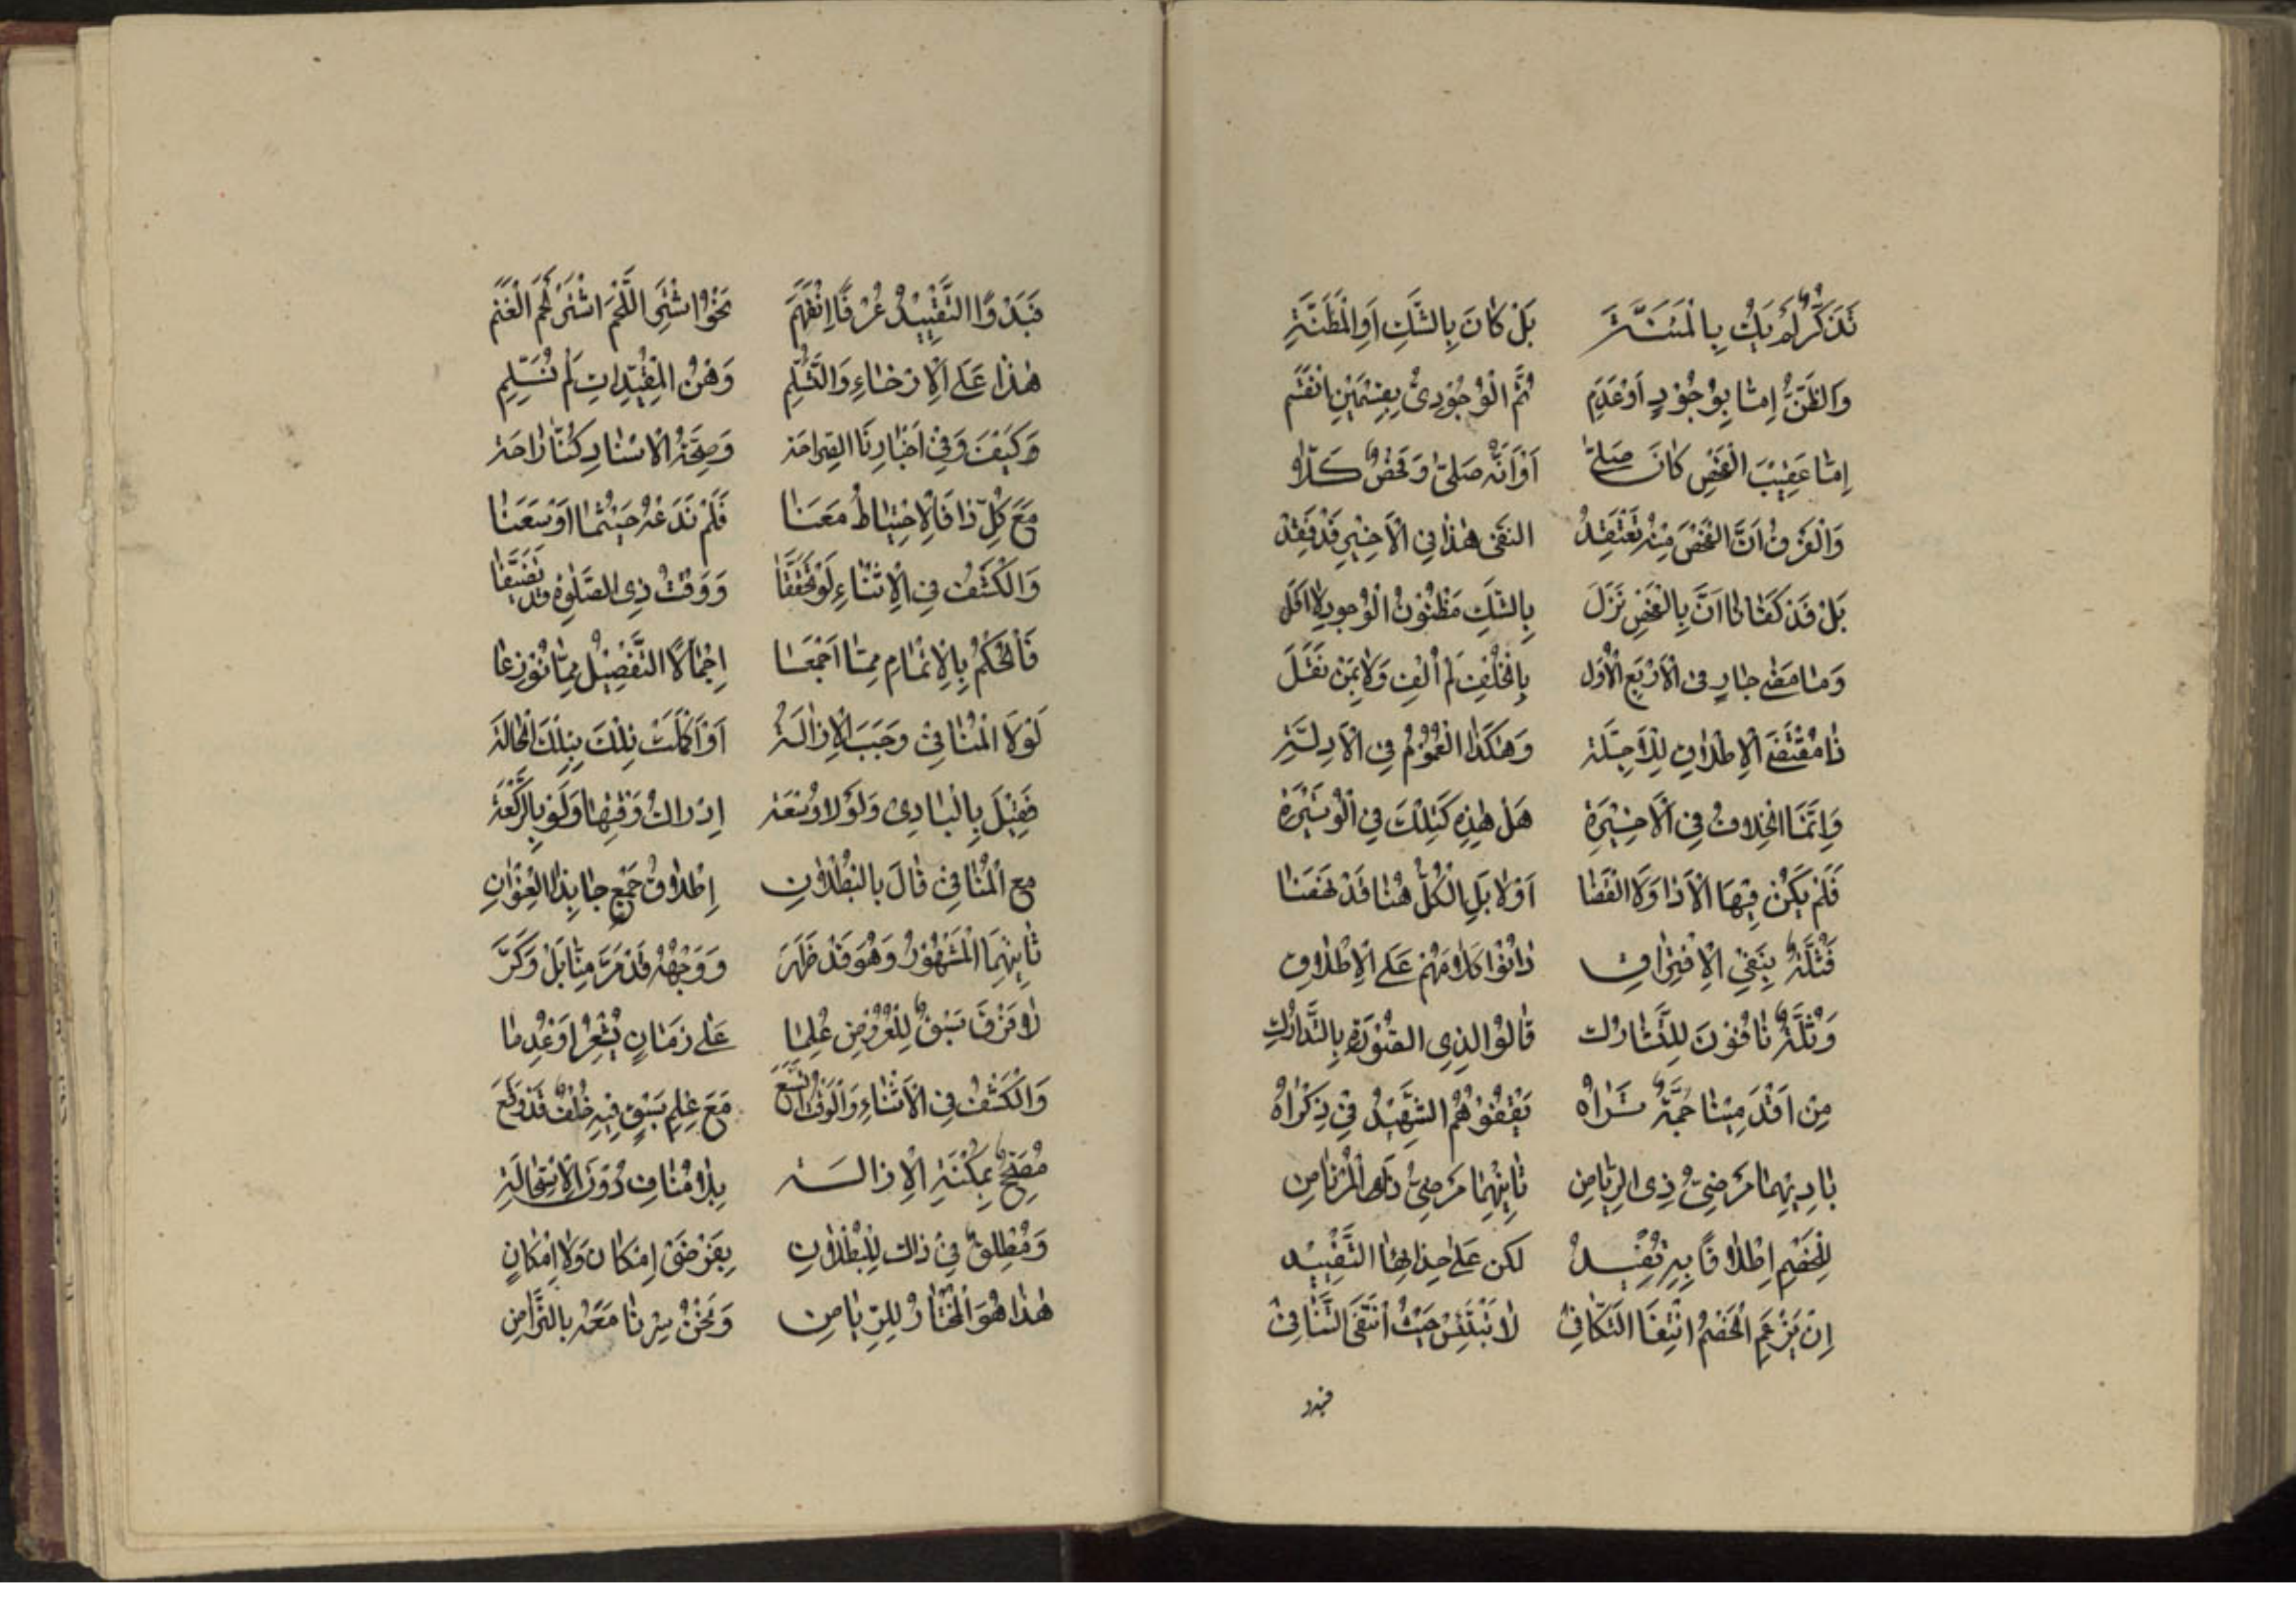 تَذَكُّرٌ لَمْ يَكُ بِالْمَئِنَّةِ بَلْ كَانَ بِالشَّكِ اَوِ الْمَظَنَّةِ
وَالظَّنُّ اِمَّا بِوُجُوْدٍ اَوْعَدَمٍ ثُمَّ الْوُجُوْدِىُّ بِقِسْمَيْنِ انْقَسَمَ
اِمَّا عَقِيْبَ الْفَحْصِ كَانَ صَلّىٰ اَوْ اَنَّهُ صَلّىٰ وَفَحْصٌ كَلّا
وَالْفَرْقُ اَنَّ الْفَحْصَ مِنْهُ يَعْتَقِدُ النَّفْىَ هٰذَا فِى الْاَخِيْرِ قَدْ فَقِدْ
بَلْ قَدْ كَفَانَا اَنَّ بِالْفَحْصِ نَزَلَ بِالشَّكِ مَظْنُوْنُ الْوُجودِ لا اَقَلَّ
وَمَا مَضىٰ جَارٍ فِى الْاَرْبَعِ الْاُوَلِ بِالْخُلْفِ لَمْ اُلْفِ وَلا بِمَنْ نَقَلَ
ذَا مُقْتَضَى الْاِطْلاقِ لِلْاَجِلَّةِ وَهٰكَذَا الْعُمُوْمُ فِى الْاَدِلَّةِ
وَاِنَّمَا الْخِلافُ فِى الْاَخِيْرَةِ هَلْ هٰذِهِ كَتِلْكَ فِى الْوَتِيْرَةِ
فَلَمْ يَكُنْ فِيْهَا الْاَدَا وَلَا الْقَضَا اَوْلا بَلِ الْكُلُّ هُنَا قَدْ نَهَضَا
فَثُلَّةٌ بِنَفْىِ الْاِفْتِرَاقِ دَانُوْا كَلامُهُمْ عَلَى الْاِطْلاقِ
وَثُلَّةٌ نَافُوْنَ لِلتَّشَارُكِ قَالُوْا لِذِى الصُّوْرَةِ بِالتَّدَارُكِ
مِنْ اَقْدَمِيْنَا جُمَّةٌ تَرَاهُ يَقْفُوْهُمُ الشَّهِيْدُ فِىْ ذِكْرَاهُ
بَادِيْهِمَا مَرْضِىُّ ذِى الرِّيَاضِ ثَانِيْهِمَا مَرْضِىُّ الْمُرْتَاضِ
لِلْخَصْمِ اِطْلاقًا بِهِ تُفِيْدُ لكن عَلىٰ حِذَائِهَا التَّقْيِيْد
اِنْ يَزْعَمِ الْخَصْمُ انْتِفَا التَّكَافِىْ لا تَبْتَئِسْ حَيْثُ انْتَفَى التَّنَافِىْ
فبدو
فَبَدْوًا التَّقْيِيْدُ عُرْفًا اِنْفَهَمَ نَحْوُ اشْتَرِ اللَّحْمَ اشْتَرْ لَحْمَ الْغَنَمِ
هٰذَا عَلَى الْاِرْخَاءِ وَالتَّسَلُّمِ وَهْنُ الْمُقَيِّدَاتِ لَمْ نُسَلِّمِ
وَكَيْفَ وَفِىْ اَخْبَارِنَا الصَّرَاحَة وَصِحَّةُ الْاِسْنَادِ
مَعَ كُلِّ ذَا فَالْاِحْتِيَاطُ مَعَنَا فَلَمْ نَدَعْهُ حَيْثُمَا اَوْسَعَنَا
وَالْكَشْفُ فِى الْاِثْنَاءِ لَوْ تَحَقَّقَا وَوَقْتُ ذِى الصَّلٰوةِ قد تَضَيَّقَا
فَالْحُكْمُ بِالْاِتْمَامِ مِمَّا اَجْمَعَا اِجْمَالًا التَّفْصِيْلُ مِمَّا نُوْزِعَا
لَوْلَا الْمُنَافِىْ وَجَبَ الْاِزَالَةُ اَوْ اُكْمِلَتْ تِلْكَ بِتِلْكَ الْحَالَةِ
فَقِيْلَ بِالْبَادِى وَلَوْلا وُسْعَة اِدْرَاكُ وَقْتِهَا وَلَوْ بِالرَّكْعَةِ
مع الْمُنَافِىْ قَالَ بِالْبُطْلانِ اِطْلاقُ جَمْعٍ جَا بِذَا الْعِنْوَانِ
ثَانِيْهِمَا الْمَشْهُوْرُ وَهْوَ قَدْ ظَهَرَ وَوَجْهُهُ قَدْ مَرَّ مِنَّا بَلْ وَكَرَّ
لا فَرْقَ سَبْقٌ لِلْعُرُوْضِ عُلِمَا عَلىٰ زَمَانٍ يُشْعِرُ اَوْ عُدِمَا
وَالْكَشْفُ فِى الْاَثْنَاءِ وَالْوَقْتُ اتَّسَعَ مَعَ عِلْمِ سَبْقٍ فِيْهِ خُلْفٌ قَدْ وَقَعَ
مُصَحِّحٌ بِمُكْنَةِ الْاِزَالَة بِلا مُنَافٍ دُوْنَ الْاِسْتِحَالَةِ
وَمُطْلِقٌ فِىْ ذٰلك لِلْبُطْلانِ بِفَرْضَىْ اِمْكَان وَلا اِمْكَانِ
هٰذَا هُوَ الْمُخْتَارُ لِلرِّيَاضِ وَنَحْنُ سِرْنَا مَعَهُ بِالتَّرَاضِ